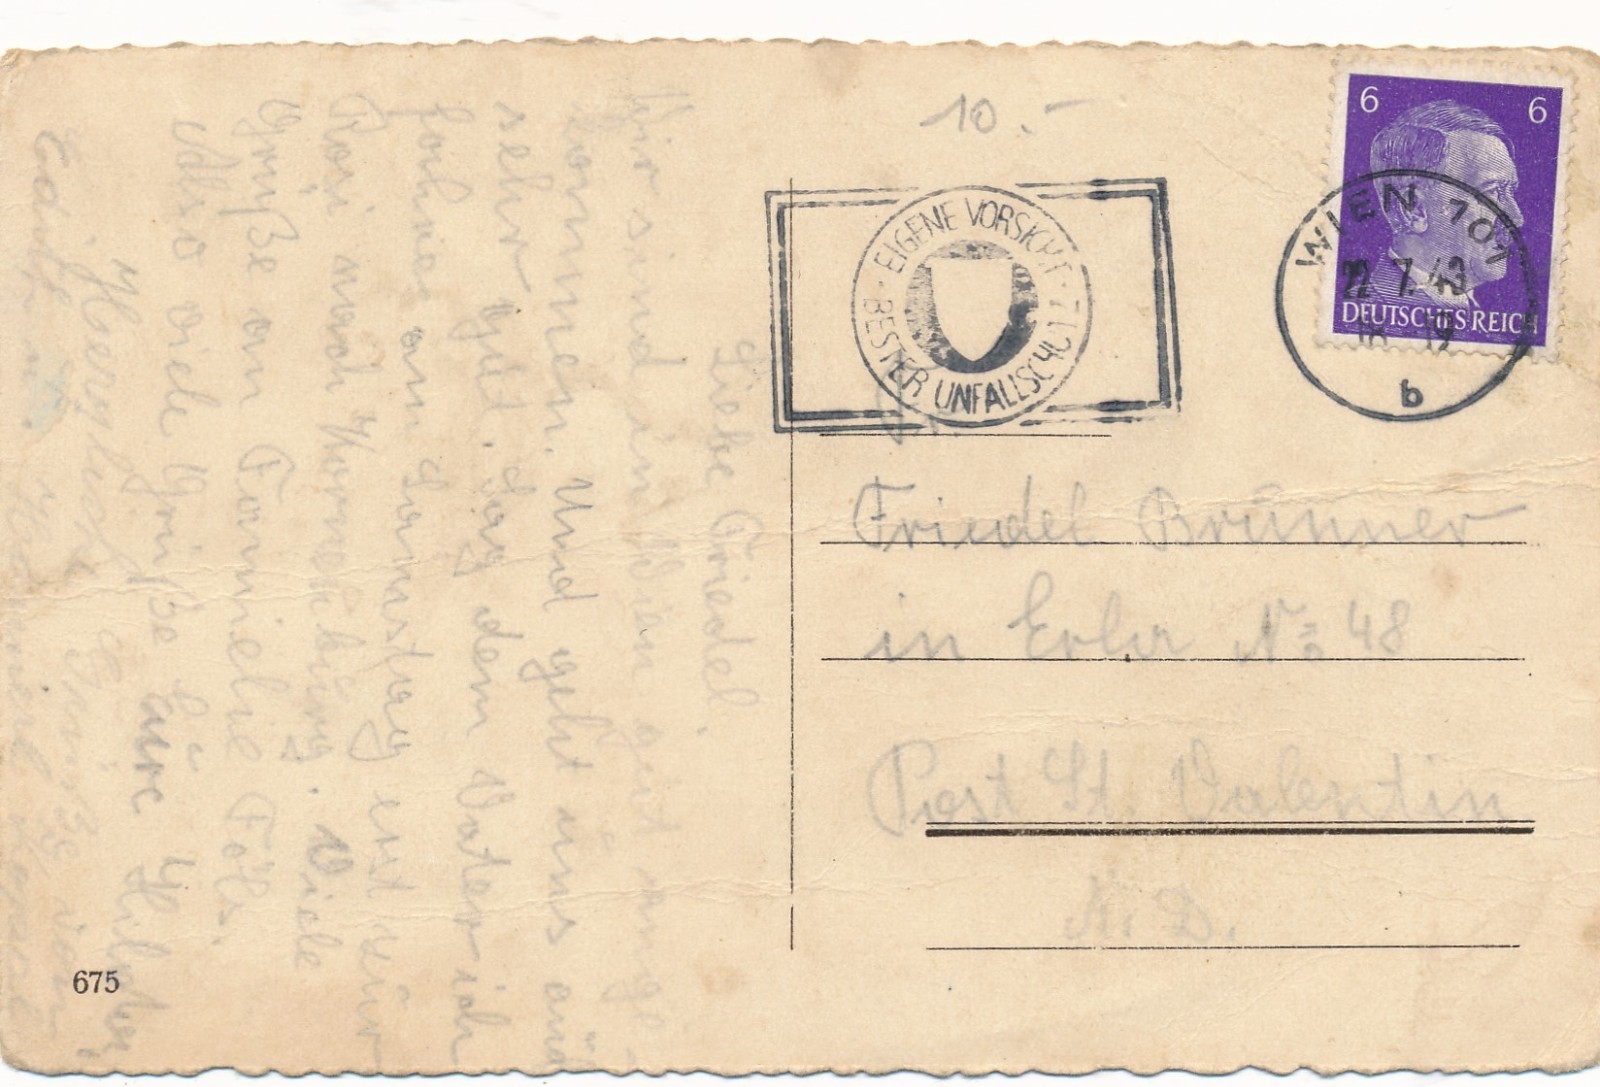 10.-
6 6
DEUTSCHES REICH
WIEN 101
22.7.43
18-19
b
EIGENE VORSICHT · BESTER UNFALLSCHUTZ ·
Friedel Brünner
in Erla No 48
Post St. Valentin
N. D.
Liebe Friedel.
Wir sind in Wien gut ange-
kommen. Und geht uns auch
sehr gut. Sag dem Vater ich
fahre am Samstag erst zur
Rosi nach Korneuburg. Viele
Grüße an Familie Föls.
Also viele Grüße Eure Hilde
Herzliche Grüße
675